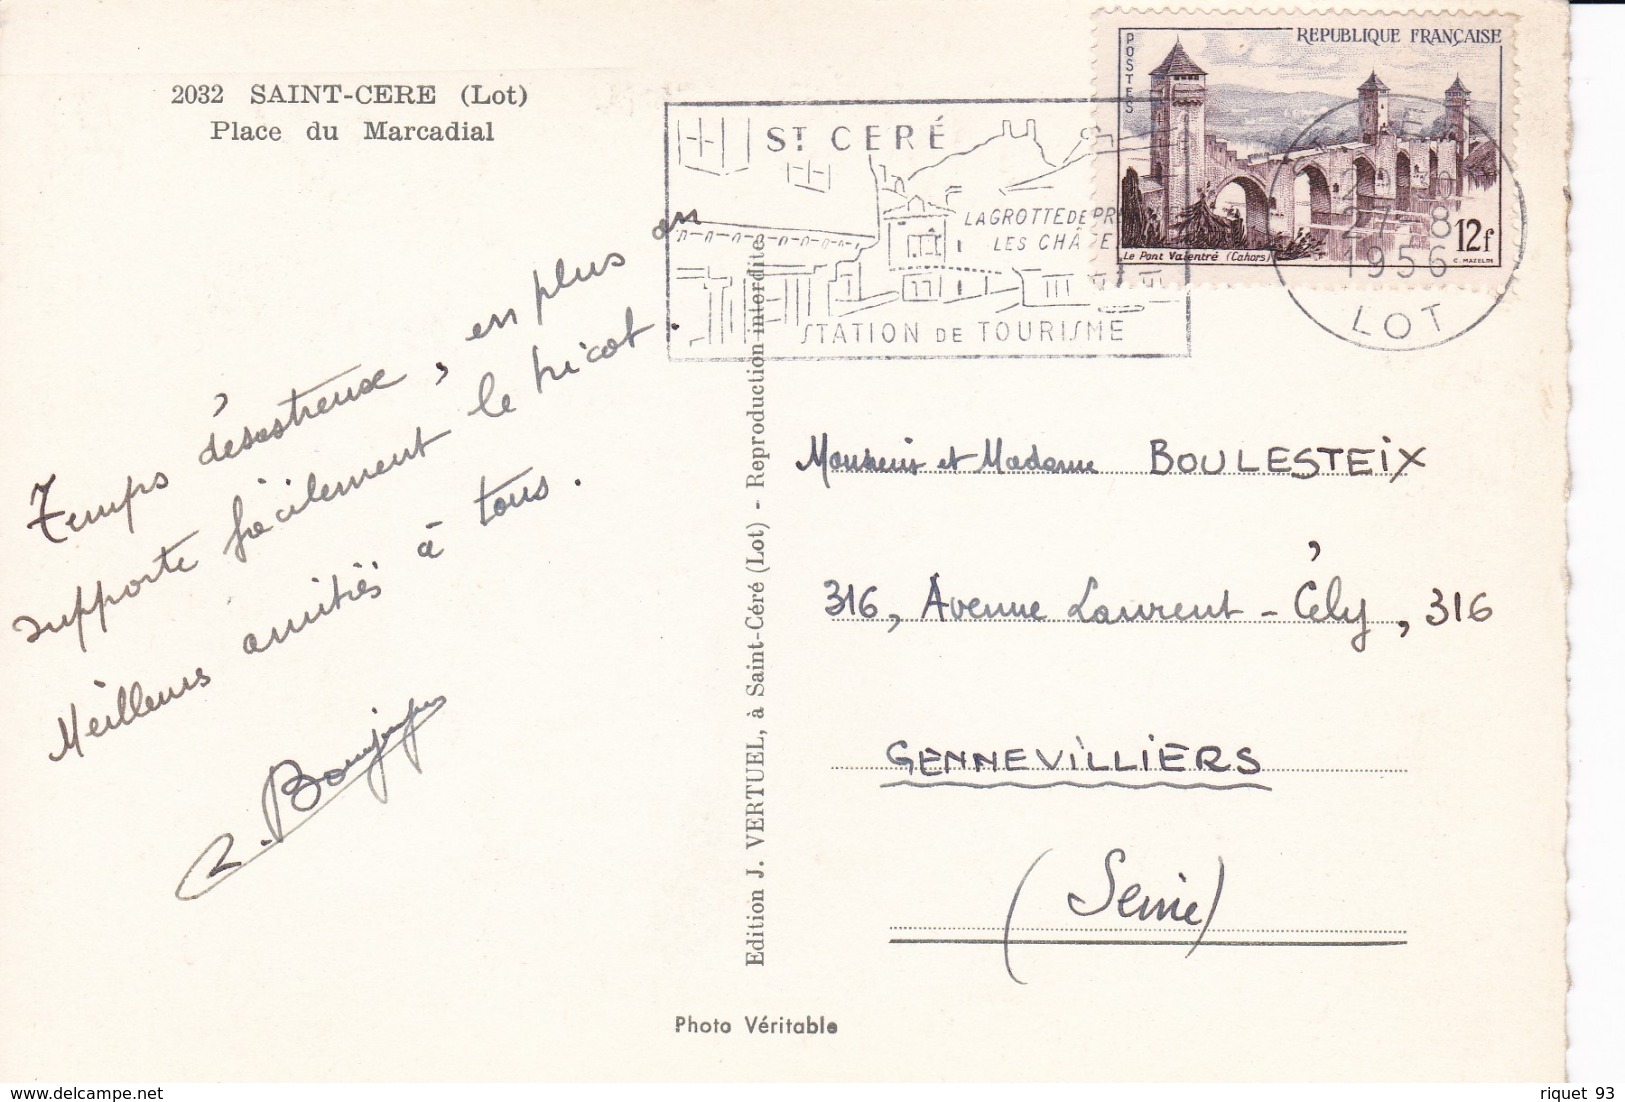 2032 SAINT-CERE (Lot)
Place du Marcadial
Temps désastreux, en plus on
supporte fàcilement le tricot.
Meilleurs amitiés à tous.
Edition J. VERTUEL, à Saint-Céré (Lot) - Reproduction interdite
Photo Véritable
ST CERÉ
LA GROTTE DE PR
LES CHÂTE
STATION DE TOURISME
POSTES
REPUBLIQUE FRANÇAISE
Le Pont Valentré (Cahors)
12f
C. MAZELIN
27-8
1956
LOT
Monsieur et Madame BOULESTEIX
316, Avenue Laurent-Cély, 316
GENNEVILLIERS
(Seine)
riquet 93